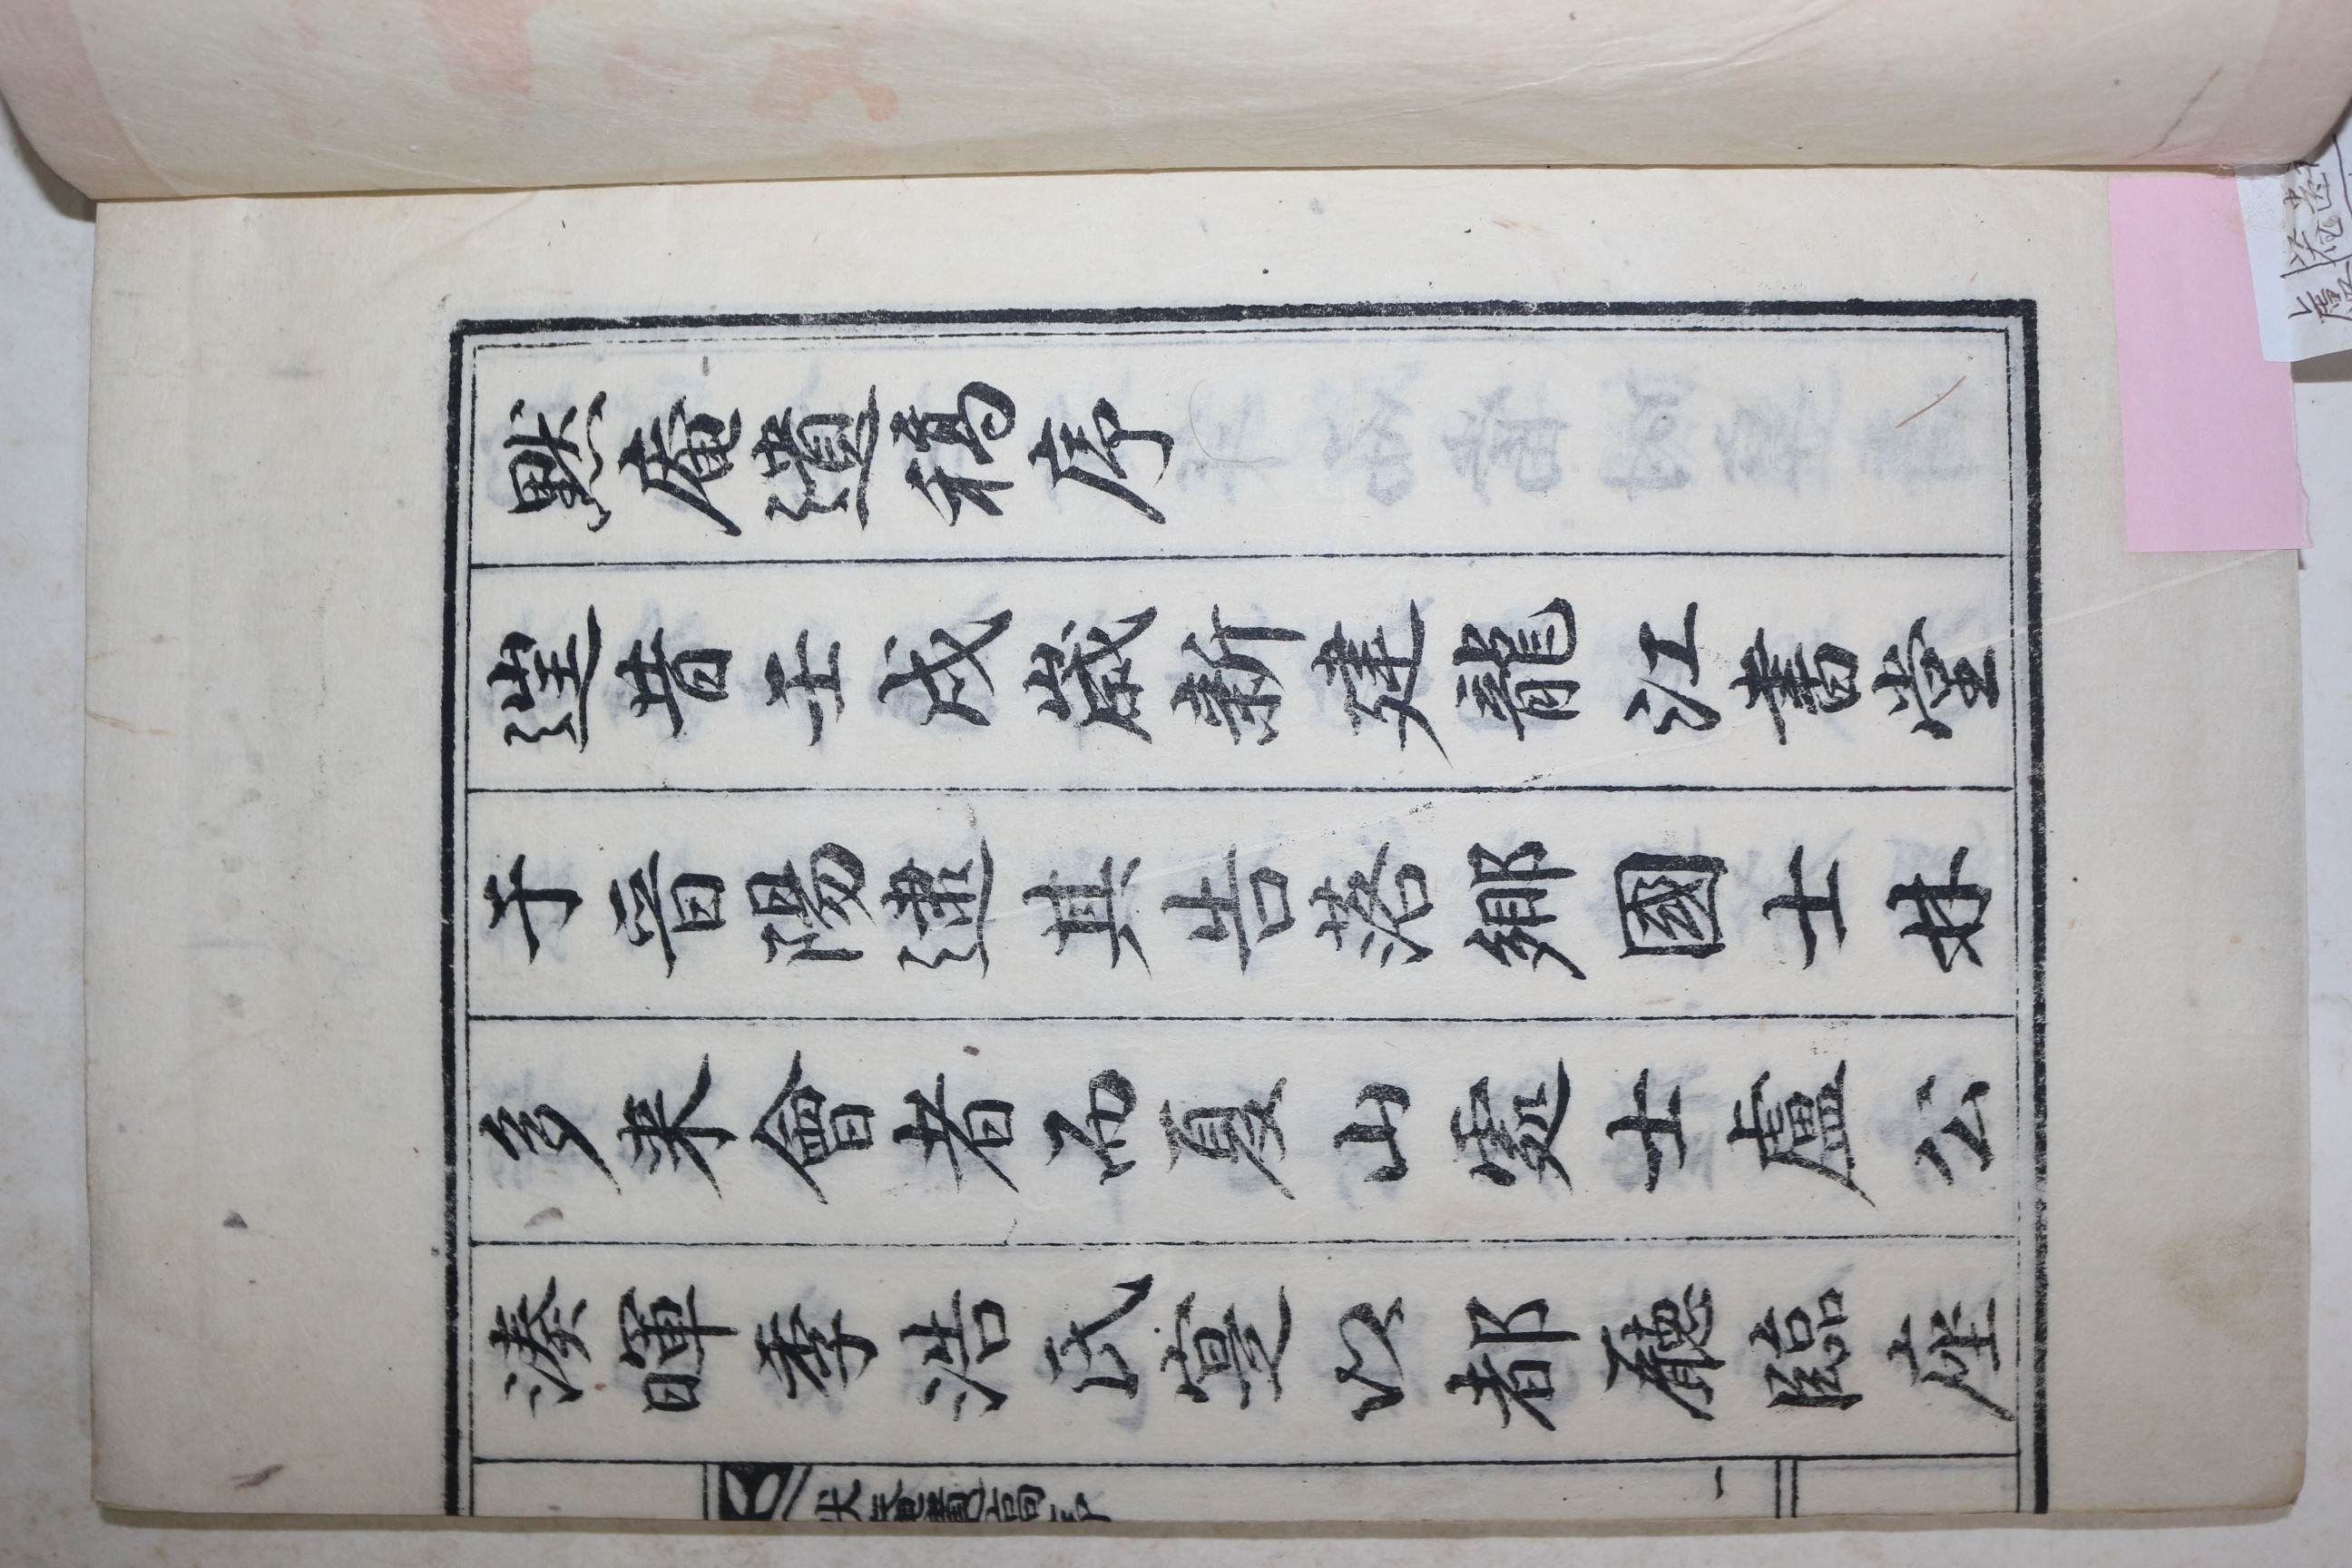 默庵遺稿序
遑昔壬戌歲新建龍江書堂
于晉陽逮其告落鄉國士林
多来會者而夏山處士盧公
湊暉季浩氏寔以都廳臨座
一